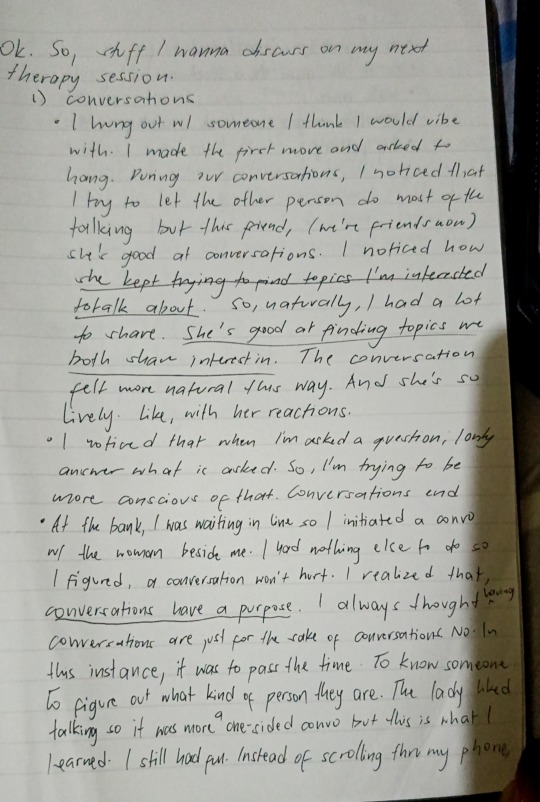 Ok. So, stuff I wanna discuss on my next
therapy session.
1) conversations
• I hung out w/ someone I think I would vibe
with. I made the first move and asked to
hang. During our conversations, I noticed that
I try to let the other person do most of the
talking but this friend, (we're friends now)
she's good at conversations. I noticed how
she kept trying to find topics I'm interested
to talk about. So, naturally, I had a lot
to share. She's good at finding topics we
both share interest in. The conversation
felt more natural this way. And she's so
lively. Like, with her reactions.
• I noticed that when I'm asked a question, I only
answer what is asked. So, I'm trying to be
more conscious of that. Conversations end
• At the bank, I was waiting in line so I initiated a convo
w/ the woman beside me. I had nothing else to do so
I figured, a conversation won't hurt. I realized that,
conversations have a purpose. I always thought having
conversations are just for the sake of conversations. No. In
this instance, it was to pass the time. To know someone
To figure out what kind of person they are. The lady liked
talking so it was more a one-sided convo but this is what I
learned. I still had fun. Instead of scrolling thru my phone,